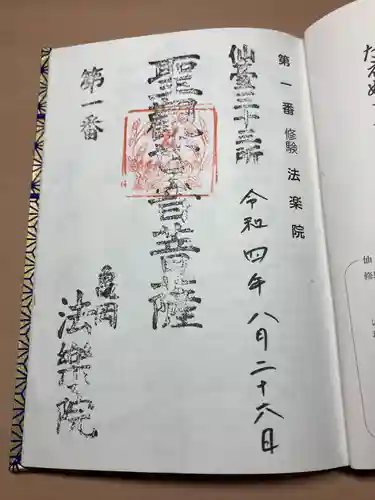 第一番 修験 法楽院
仙台三十三所
令和四年八月二十六日
聖観世音菩薩
第一番
亀岡
法樂院
た
仙
修